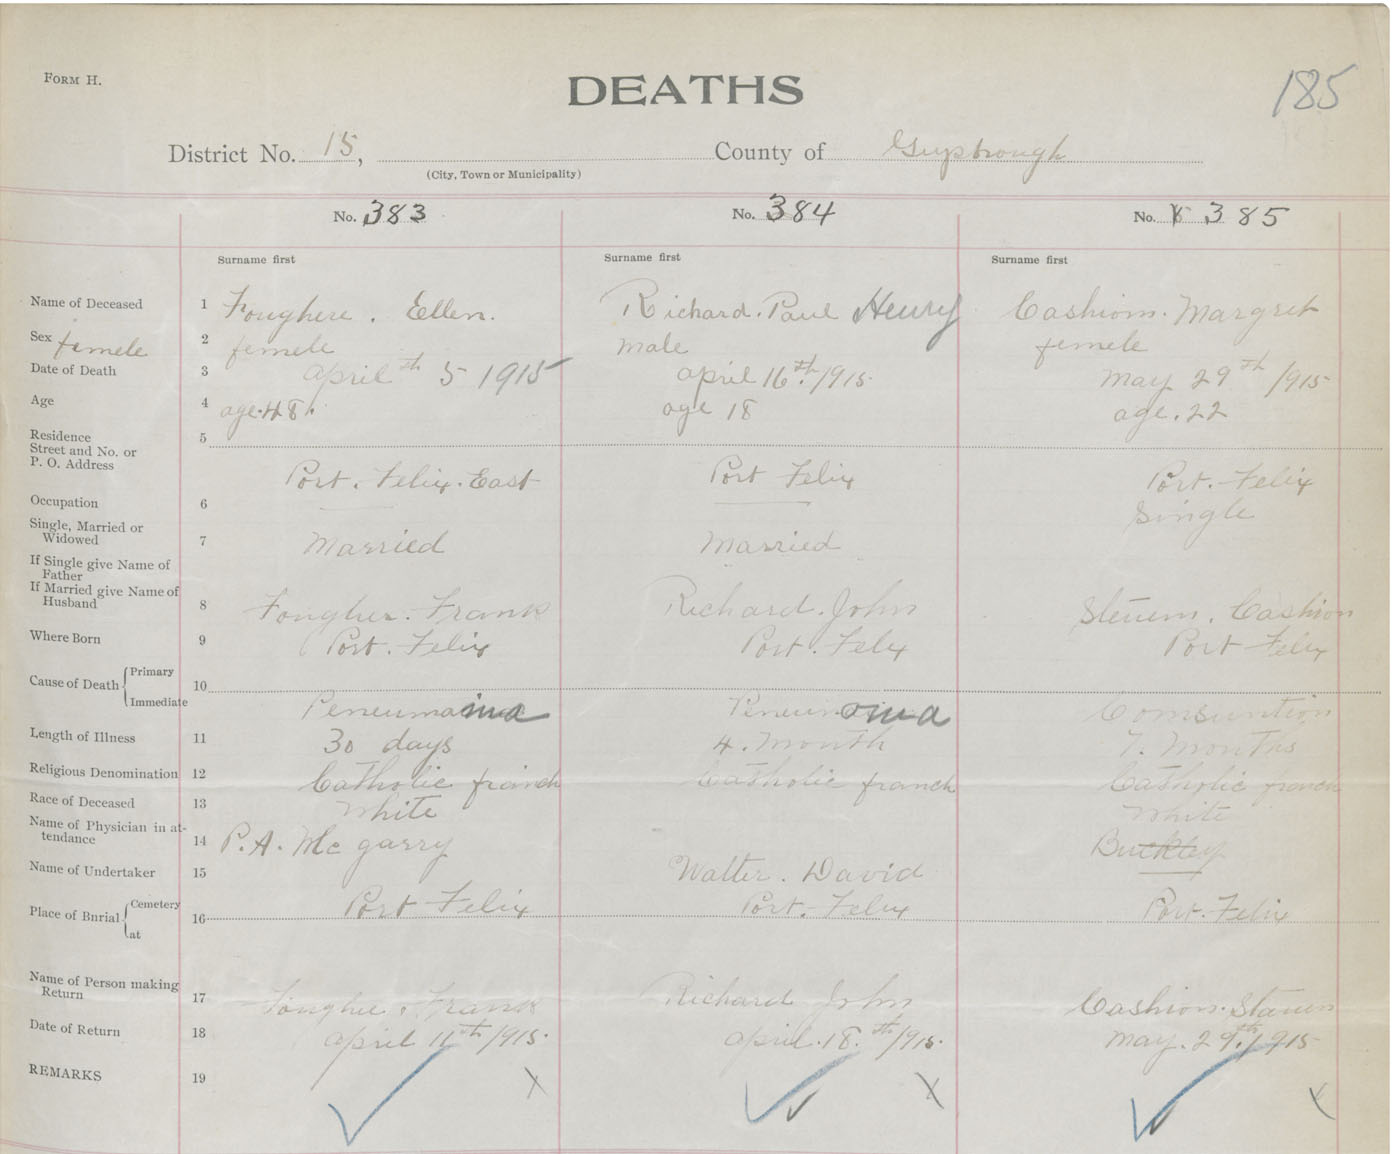 FORM H.
DEATHS
185
District No. 15, County of Guysbrough
(City, Town or Municipality)
No. 383 No. 384 No. 385
Surname first Surname first Surname first
Name of Deceased 1 Foughere. Ellen. Richard. Paul Henry Cashiom. Margret
Sex femele 2 femele male femele
Date of Death 3 april th 5 1915 april 16th. /915. may 29th /915
Age 4 age. 48. age 18 age. 22
Residence 5
Street and No. or
P. O. Address Port. Felix. East Port Felix Port. Felix
Occupation 6 Single
Single, Married or 7 Married Married
Widowed
If Single give Name of
Father
If Married give Name of 8 Fougher. Frank Richard. John Steuem. Cashion
Husband
Where Born 9 Port. Felix Port. Felix Port Felix
Cause of Death Primary 10
Immediate Peneumaina Peneumonia Comsumtion
Length of Illness 11 30 days 4. month 7. months
Religious Denomination 12 Catholic franch Catholic franch Catholic franch
Race of Deceased 13 White White
Name of Physician in at- 14 P. A. Mc garry Buckley
tendance
Name of Undertaker 15 Walter. David
Place of Burial Cemetery 16 Port Felix Port. Felix Port. Felix
at
Name of Person making 17 Foughere. Frank Richard John Cashion. Stauen
Return
Date of Return 18 april 11th /915. april. 18. th /915. may. 29th. /915
REMARKS 19 x x x